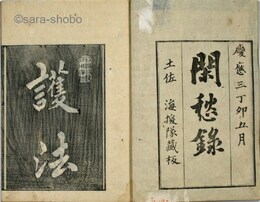 ©sara-shobo
慶應三丁卯五月
閑愁録
土佐 海援隊藏板
護法